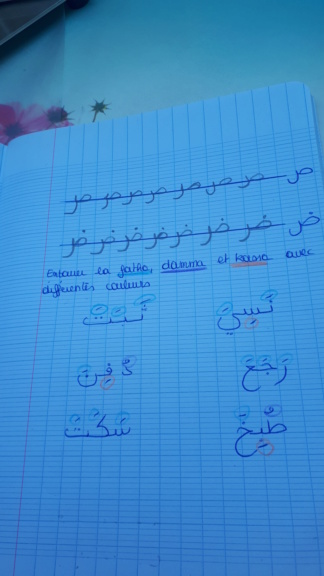 ص ص ص ص ص ص ص ص
ض ض ض ض ض ض ض ض
Entourer la fatha, damma et kasra avec
différentes couleurs
نَسِيَ ثَبَتَ
رَجَعَ دُفِنَ
طُبِخَ سَكَتَ